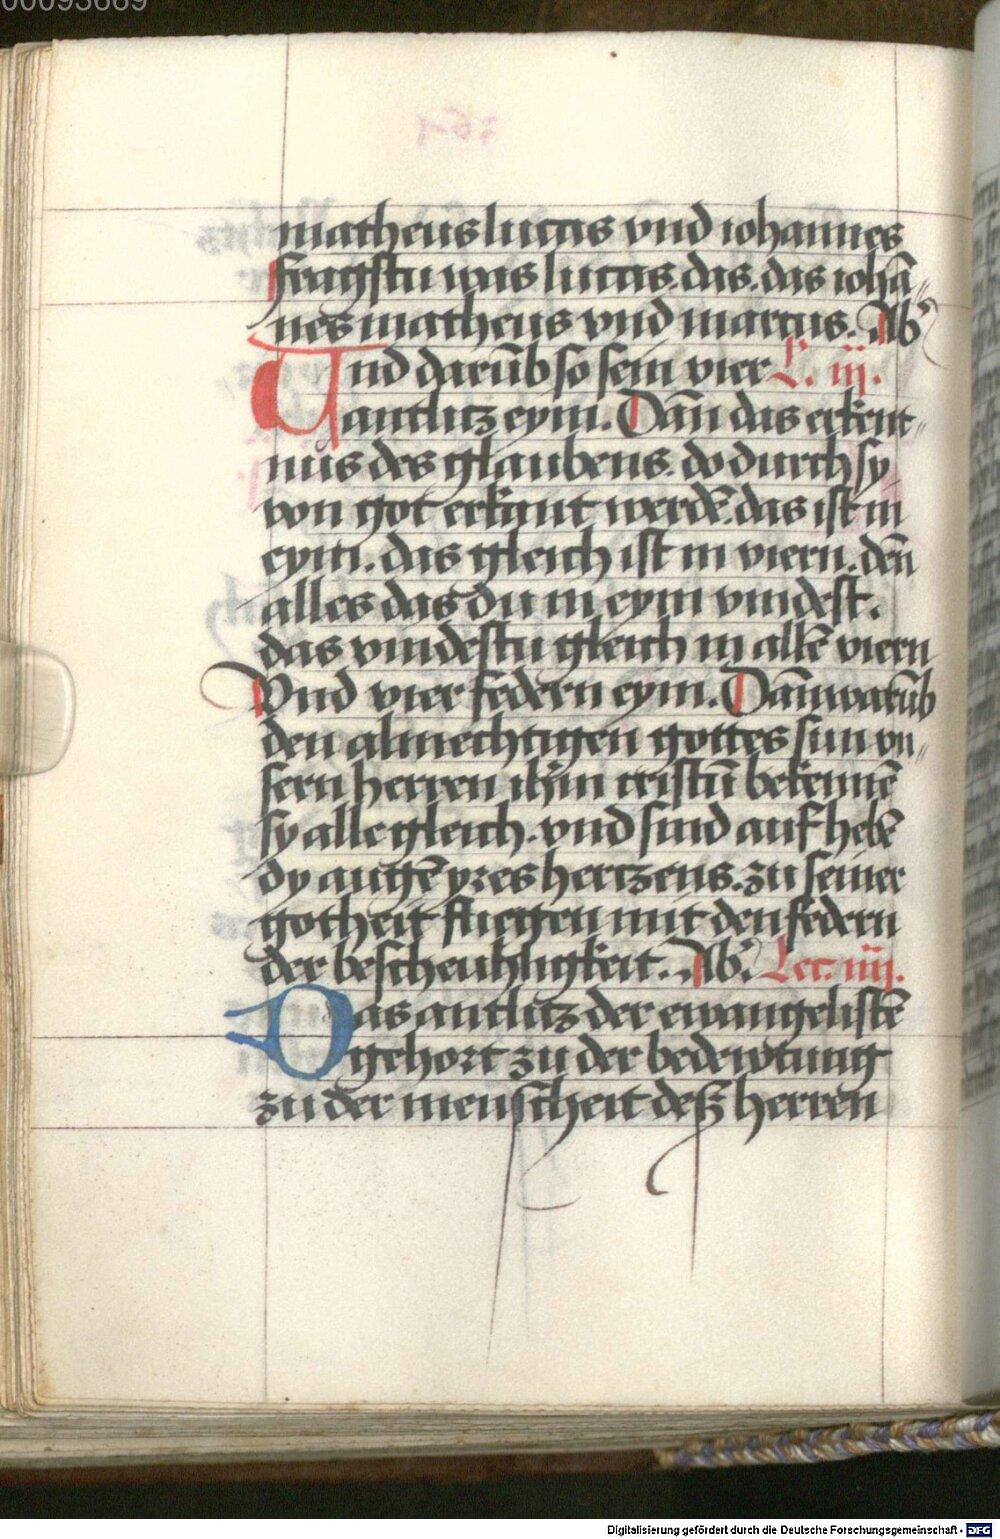 00093669
matheus lucas vnd iohannes
fragstu was lucas. das. das iohā⸗
nes matheus vnd marcus. Ab'
Vnd darūb so sein vier L. iij.
antlitz eym. Dān das erkent⸗
nus des glaubens. do durch sy
von got erkant werdē. das ist in
eym. das gleich ist in viern. dēn
alles das du in eym vindest.
das vindestu gleich in allē viern
Vnd vier federn eym. Dān warūb
den almechtigen gottes sun vn⸗
sern herren ihm̄ cristū bekennē
sy alle gleich. vnd sind auf hebē
dy augē yres hertzens. zu seiner
gotheit fliegen mit den federn
der bescheuhligkeit. Ab' Lec. iiij.
Das antlitz der ewangelistē
gehort zu der bedewtung
zu der menscheit desz herren
Digitalisierung gefördert durch die Deutsche Forschungsgemeinschaft - DFG